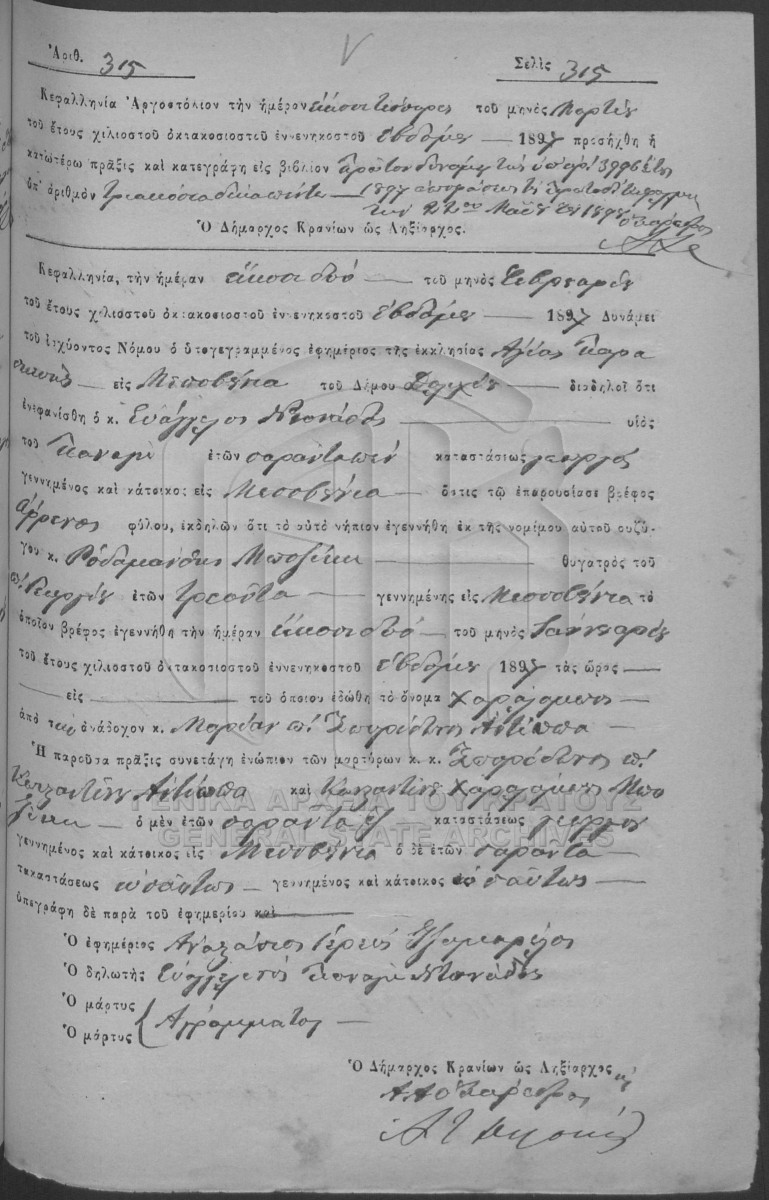 Ἀριθ. 315 Σελὶς 315
Κεφαλληνία Ἀργοστόλιον τὴν ἡμέραν εἰκοσιτέσσαρες τοῦ μηνὸς Μαρτίου
τοῦ ἔτους χιλιοστοῦ ὀκτακοσιοστοῦ ἐννενηκοστοῦ ἑβδόμου 1897 προσήχθη ἡ
κατωτέρω πρᾶξις καὶ κατεγράφη εἰς βιβλίον πρῶτον δυνάμει τῆς ὑπ' ἀρ. 3998
ὑπ' ἀριθμὸν τριακόσια δεκαπέντε 1897 ἀποφάσεως
Ὁ Δήμαρχος Κρανίων ὡς Ληξίαρχος.
Κεφαλληνία, τὴν ἡμέραν εἴκοσι δύο τοῦ μηνὸς Φεβρουαρίου
τοῦ ἔτους χιλιοστοῦ ὀκτακοσιοστοῦ ἐννενηκοστοῦ ἑβδόμου 1897 Δυνάμει
τοῦ ἰσχύοντος Νόμου ὁ ὑπογεγραμμένος ἐφημέριος τῆς ἐκκλησίας Ἁγίας Παρα
σκευῆς εἰς Μεσοβούνια τοῦ Δήμου διαδηλοῖ ὅτι
ἐνεφανίσθη ὁ κ. Εὐάγγελος υἱὸς
τοῦ Παναγῆ ἐτῶν σαράντα καταστάσεως γεωργὸς
γεννημένος καὶ κάτοικος εἰς Μεσοβούνια ὅστις τῷ ἐπαρουσίασε βρέφος
ἄρρενος φύλου, ἐκδηλῶν ὅτι τὸ αὐτὸ νήπιον ἐγεννήθη ἐκ τῆς νομίμου αὐτοῦ συζύ-
γου κ. Ροδαμάνθης θυγατρὸς τοῦ
π. Γεωργίου ἐτῶν τριάντα γεννημένης εἰς Μεσοβούνια τὸ
ὁποῖον βρέφος ἐγεννήθη τὴν ἡμέραν εἴκοσι δύο τοῦ μηνὸς Ἰαννουαρίου
τοῦ ἔτους χιλιοστοῦ ὀκτακοσιοστοῦ ἐννενηκοστοῦ ἑβδόμου 1897 τὰς ὥρας
εἰς τοῦ ὁποίου ἐδώθη τὸ ὄνομα Χαράλαμπος
ἀπὸ τὴν ἀνάδοχον κ. Μαρίαν π. Σπυρίδωνος
Ἡ παροῦσα πρᾶξις συνετάγη ἐνώπιον τῶν μαρτύρων κ. κ. Σπυρίδωνος π.
Κωνσταντίνου καὶ Κωνσταντίνου Χαραλάμπους Μπο
ὁ μὲν ἐτῶν σαράντα ἓξ καταστάσεως γεωργὸς
γεννημένος καὶ κάτοικος εἰς Μεσοβούνια ὁ δὲ ἐτῶν σαράντα
καταστάσεως ὡσαύτως γεννημένος καὶ κάτοικος ὡσαύτως
ὑπεγράφη δὲ παρὰ τοῦ ἐφημερίου καὶ
Ὁ ἐφημέριος Ἀναστάσιος Ἱερεὺς
Ὁ δηλωτὴς Εὐάγγελος Παναγῆ
Ὁ μάρτυς
Ὁ μάρτυς Ἀγράμματοι
Ὁ Δήμαρχος Κρανίων ὡς Ληξίαρχος
Ὁ Πάρεδρος
ΓΕΝΙΚΑ ΑΡΧΕΙΑ ΤΟΥ ΚΡΑΤΟΥΣ
GENERAL STATE ARCHIVES